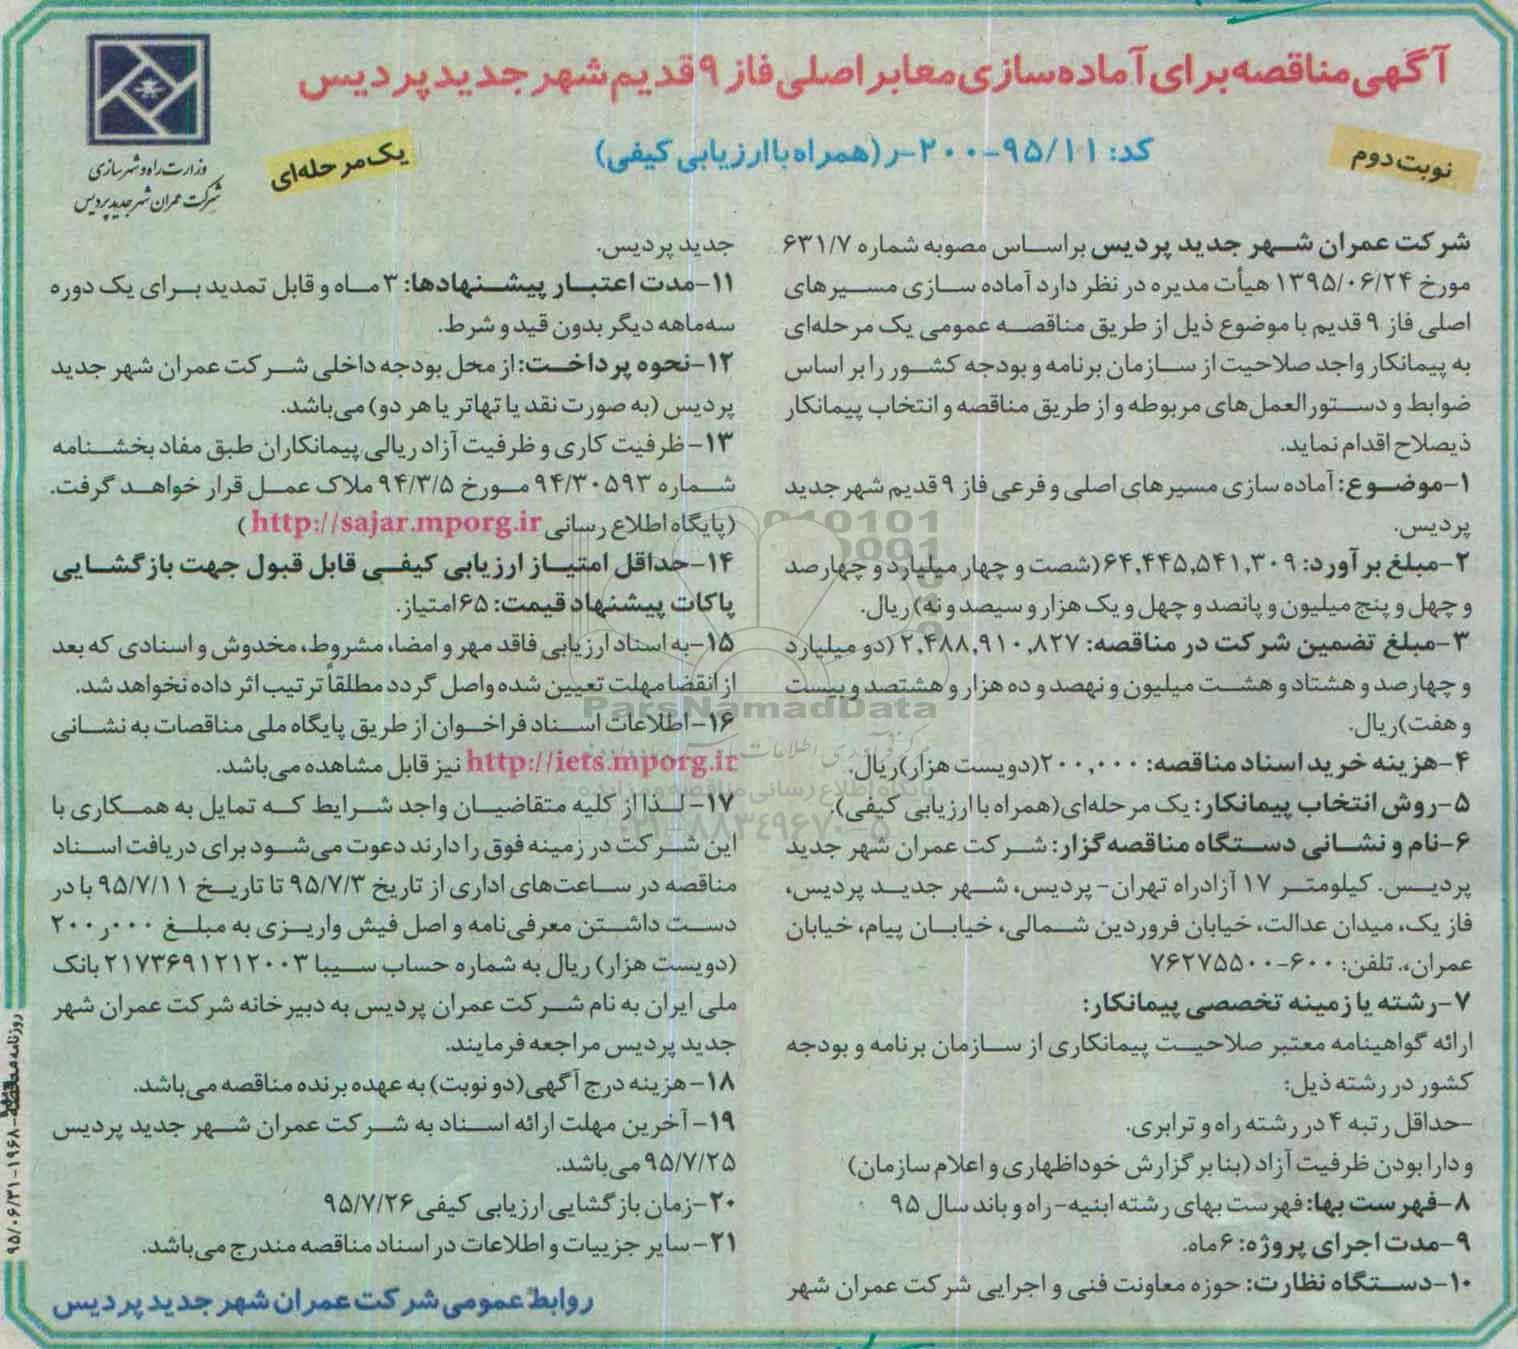 آگهی مناقصه برای آماده سازی معابر اصلی فاز ۹ قدیم شهر جدید پردیس
کد: ۹۵/۱۱-۲۰۰-ر (همراه با ارزیابی کیفی)
نوبت دوم
یک مرحله‌ای
وزارت راه و شهرسازی
شرکت عمران شهر جدید پردیس
شرکت عمران شهر جدید پردیس براساس مصوبه شماره ۶۳۱/۷
مورخ ۱۳۹۵/۰۶/۲۴ هیأت مدیره در نظر دارد آماده سازی مسیرهای
اصلی فاز ۹ قدیم با موضوع ذیل از طریق مناقصه عمومی یک مرحله‌ای
به پیمانکار واجد صلاحیت از سازمان برنامه و بودجه کشور را بر اساس
ضوابط و دستورالعمل‌های مربوطه و از طریق مناقصه و انتخاب پیمانکار
ذیصلاح اقدام نماید.
۱-موضوع: آماده سازی مسیرهای اصلی و فرعی فاز ۹ قدیم شهر جدید
پردیس.
۲-مبلغ برآورد: ۶۴,۴۴۵,۵۴۱,۳۰۹ (شصت و چهار میلیارد و چهارصد
و چهل و پنج میلیون و پانصد و چهل و یک هزار و سیصد و نه) ریال.
۳-مبلغ تضمین شرکت در مناقصه: ۲,۴۸۸,۹۱۰,۸۲۷ (دو میلیارد
و چهارصد و هشتاد و هشت میلیون و نهصد و ده هزار و هشتصد و بیست
و هفت) ریال.
۴-هزینه خرید اسناد مناقصه: ۲۰۰,۰۰۰ (دویست هزار) ریال.
۵-روش انتخاب پیمانکار: یک مرحله‌ای (همراه با ارزیابی کیفی).
۶-نام و نشانی دستگاه مناقصه گزار: شرکت عمران شهر جدید
پردیس. کیلومتر ۱۷ آزادراه تهران- پردیس، شهر جدید پردیس،
فاز یک، میدان عدالت، خیابان فروردین شمالی، خیابان پیام، خیابان
عمران،. تلفن: ۶۰۰-۷۶۲۷۵۵۰۰
۷-رشته یا زمینه تخصصی پیمانکار:
ارائه گواهینامه معتبر صلاحیت پیمانکاری از سازمان برنامه و بودجه
کشور در رشته ذیل:
-حداقل رتبه ۴ در رشته راه و ترابری.
و دارا بودن ظرفیت آزاد (بنابر گزارش خوداظهاری و اعلام سازمان)
۸-فهرست بها: فهرست بهای رشته ابنیه-راه و باند سال ۹۵
۹-مدت اجرای پروژه: ۶ ماه.
۱۰-دستگاه نظارت: حوزه معاونت فنی و اجرایی شرکت عمران شهر
جدید پردیس.
۱۱-مدت اعتبار پیشنهادها: ۳ ماه و قابل تمدید برای یک دوره
سه‌ماهه دیگر بدون قید و شرط.
۱۲-نحوه پرداخت: از محل بودجه داخلی شرکت عمران شهر جدید
پردیس (به صورت نقد یا تهاتر یا هر دو) می‌باشد.
۱۳- ظرفیت کاری و ظرفیت آزاد ریالی پیمانکاران طبق مفاد بخشنامه
شماره ۹۴/۳۰۵۹۳ مورخ ۹۴/۳/۵ ملاک عمل قرار خواهد گرفت.
(پایگاه اطلاع رسانی http://sajar.mporg.ir)
۱۴-حداقل امتیاز ارزیابی کیفی قابل قبول جهت بازگشایی
پاکات پیشنهاد قیمت: ۶۵ امتیاز.
۱۵-به اسناد ارزیابی فاقد مهر و امضا، مشروط، مخدوش و اسنادی که بعد
از انقضا مهلت تعیین شده واصل گردد مطلقاً ترتیب اثر داده نخواهد شد.
۱۶-اطلاعات اسناد فراخوان از طریق پایگاه ملی مناقصات به نشانی
http://iets.mporg.ir نیز قابل مشاهده می‌باشد.
۱۷- لذا از کلیه متقاضیان واجد شرایط که تمایل به همکاری با
این شرکت در زمینه فوق را دارند دعوت می‌شود برای دریافت اسناد
مناقصه در ساعت‌های اداری از تاریخ ۹۵/۷/۳ تا تاریخ ۹۵/۷/۱۱ با در
دست داشتن معرفی‌نامه و اصل فیش واریزی به مبلغ ۲۰۰ر۰۰۰
(دویست هزار) ریال به شماره حساب سیبا ۲۱۷۳۶۹۱۲۱۲۰۰۳ بانک
ملی ایران به نام شرکت عمران پردیس به دبیرخانه شرکت عمران شهر
جدید پردیس مراجعه فرمایند.
۱۸- هزینه درج آگهی (دو نوبت) به عهده برنده مناقصه می‌باشد.
۱۹- آخرین مهلت ارائه اسناد به شرکت عمران شهر جدید پردیس
۹۵/۷/۲۵ می‌باشد.
۲۰-زمان بازگشایی ارزیابی کیفی ۹۵/۷/۲۶
۲۱-سایر جزییات و اطلاعات در اسناد مناقصه مندرج می‌باشد.
روابط عمومی شرکت عمران شهر جدید پردیس
روزنامه مناقصه-۱۹۶۸-۹۵/۰۶/۳۱
ParsNamadData
پایگاه اطلاع رسانی مناقصه و مزایده
۰۲۱-۸۸۳۴۹۶۷۰-۵